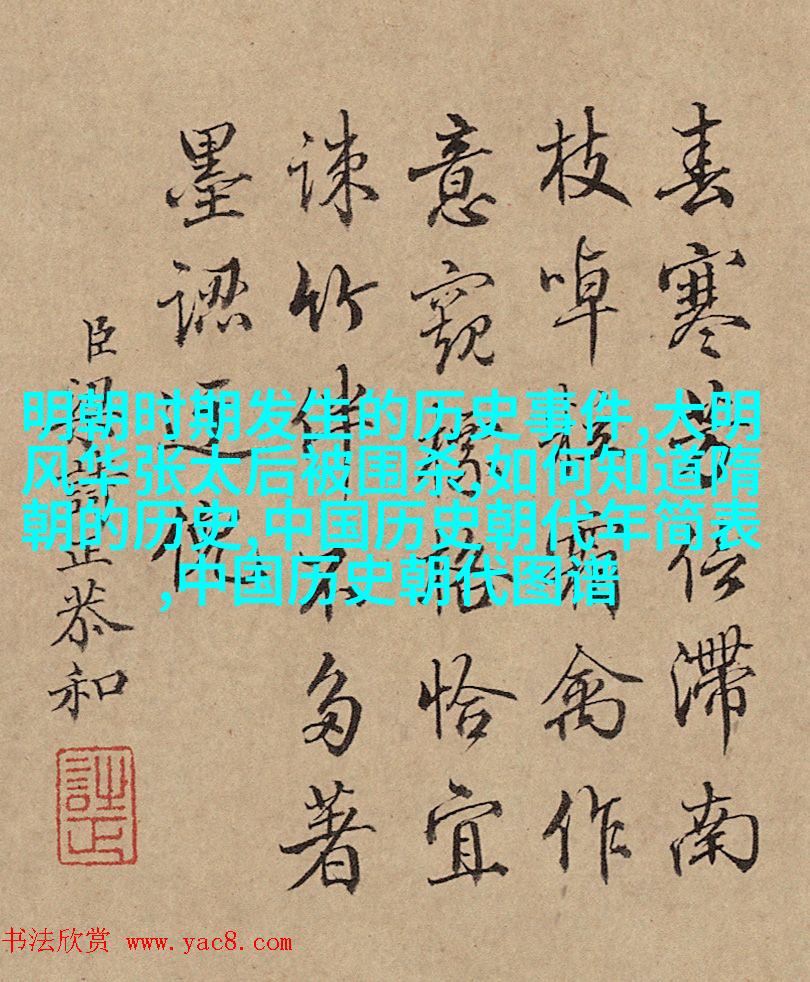 明朝时期发生的历史事件,大明
风华张太后被围杀,如何知道隋
朝的历史,中国历史朝代年简表
,中国历史朝代图谱
春寒信滯南
枝啅霜禽作
意窺恰宜
踈竹伴不多著
墨認
臣梁詩正恭和
詩正
书法欣赏 www.yac8.com